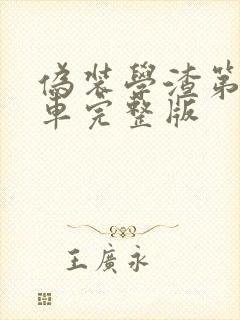 偽装學渣第
車完整版
王廣永